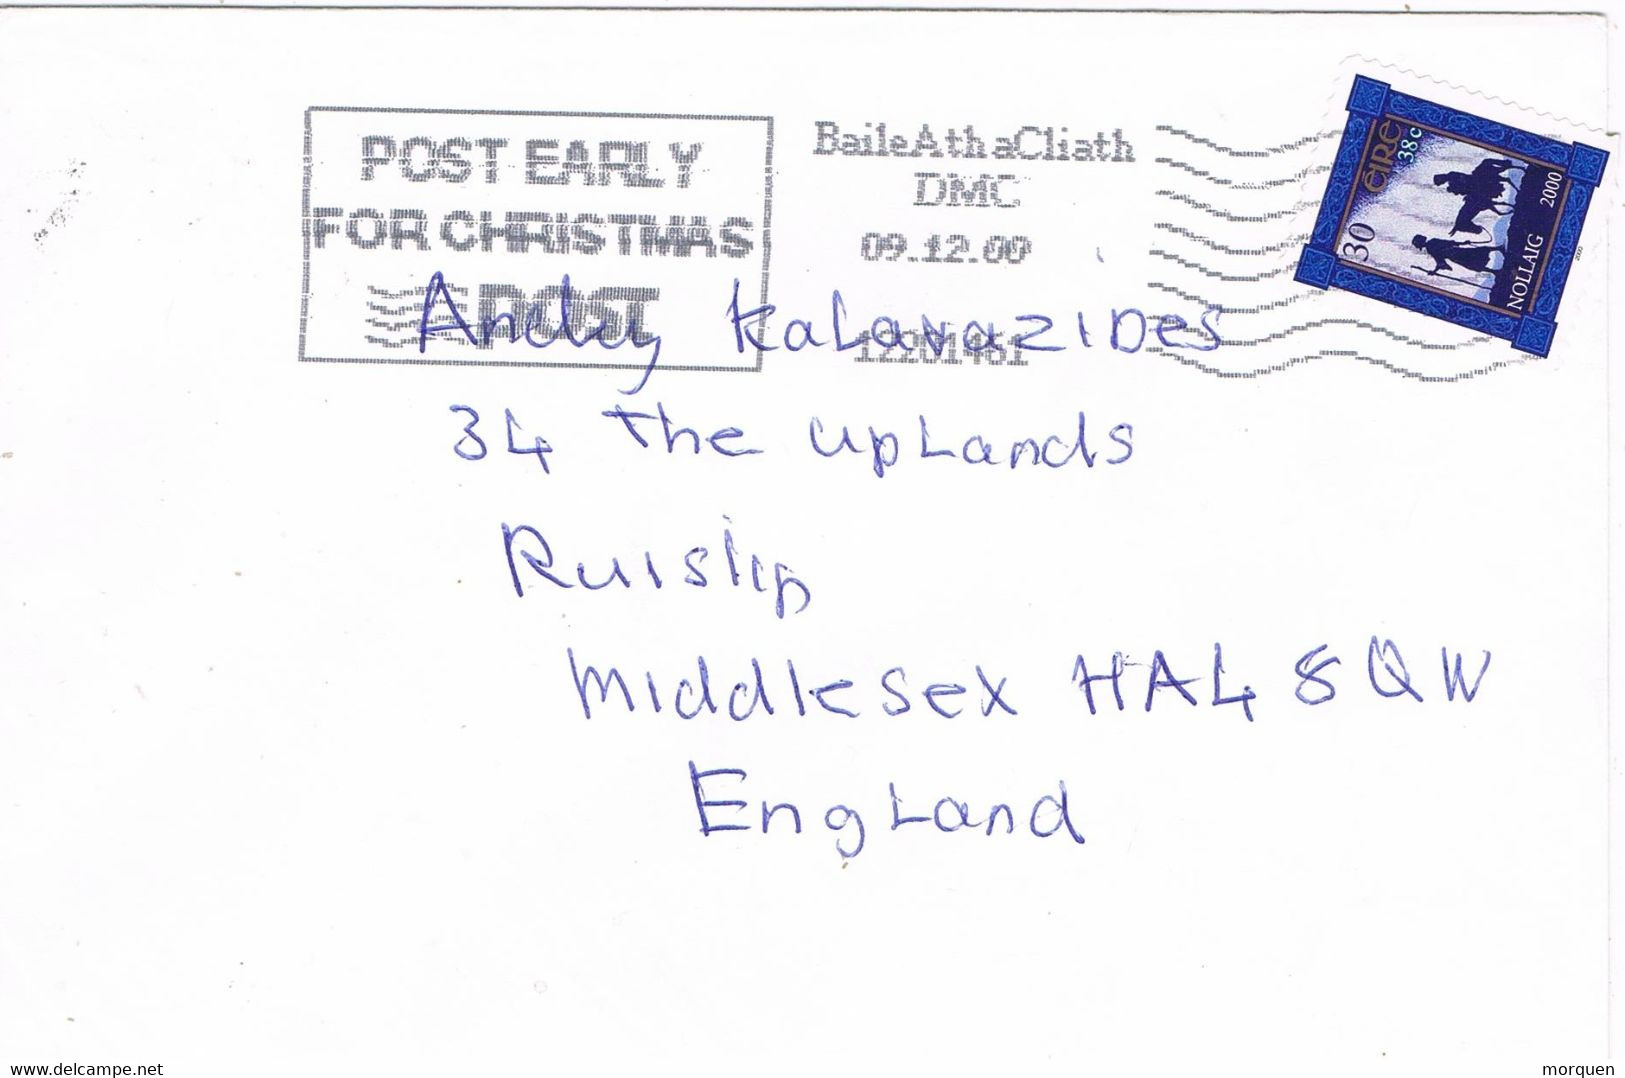 POST EARLY
FOR CHRISTMAS
POST
BaileAthaCliath
DMC
09.12.00
12201461
éire
38c
30
NOLLAIG 2000
2000
Andy KaLavazides
34 the upLands
Ruislip
Middlesex HA4 8QW
EngLand
www.delcampe.net
morquen